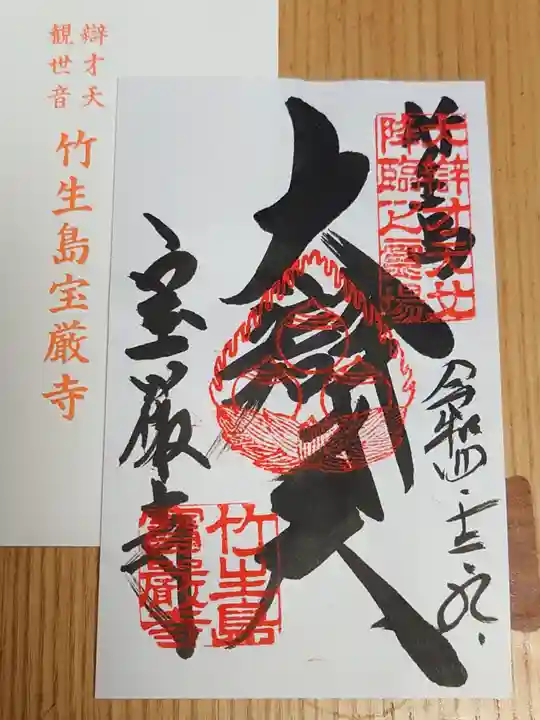 辯才天
観世音
竹生島宝厳寺
竹生島
大辯才天女
降臨之靈場
令和四・十二・九・
宝厳寺
竹生島
寶嚴寺